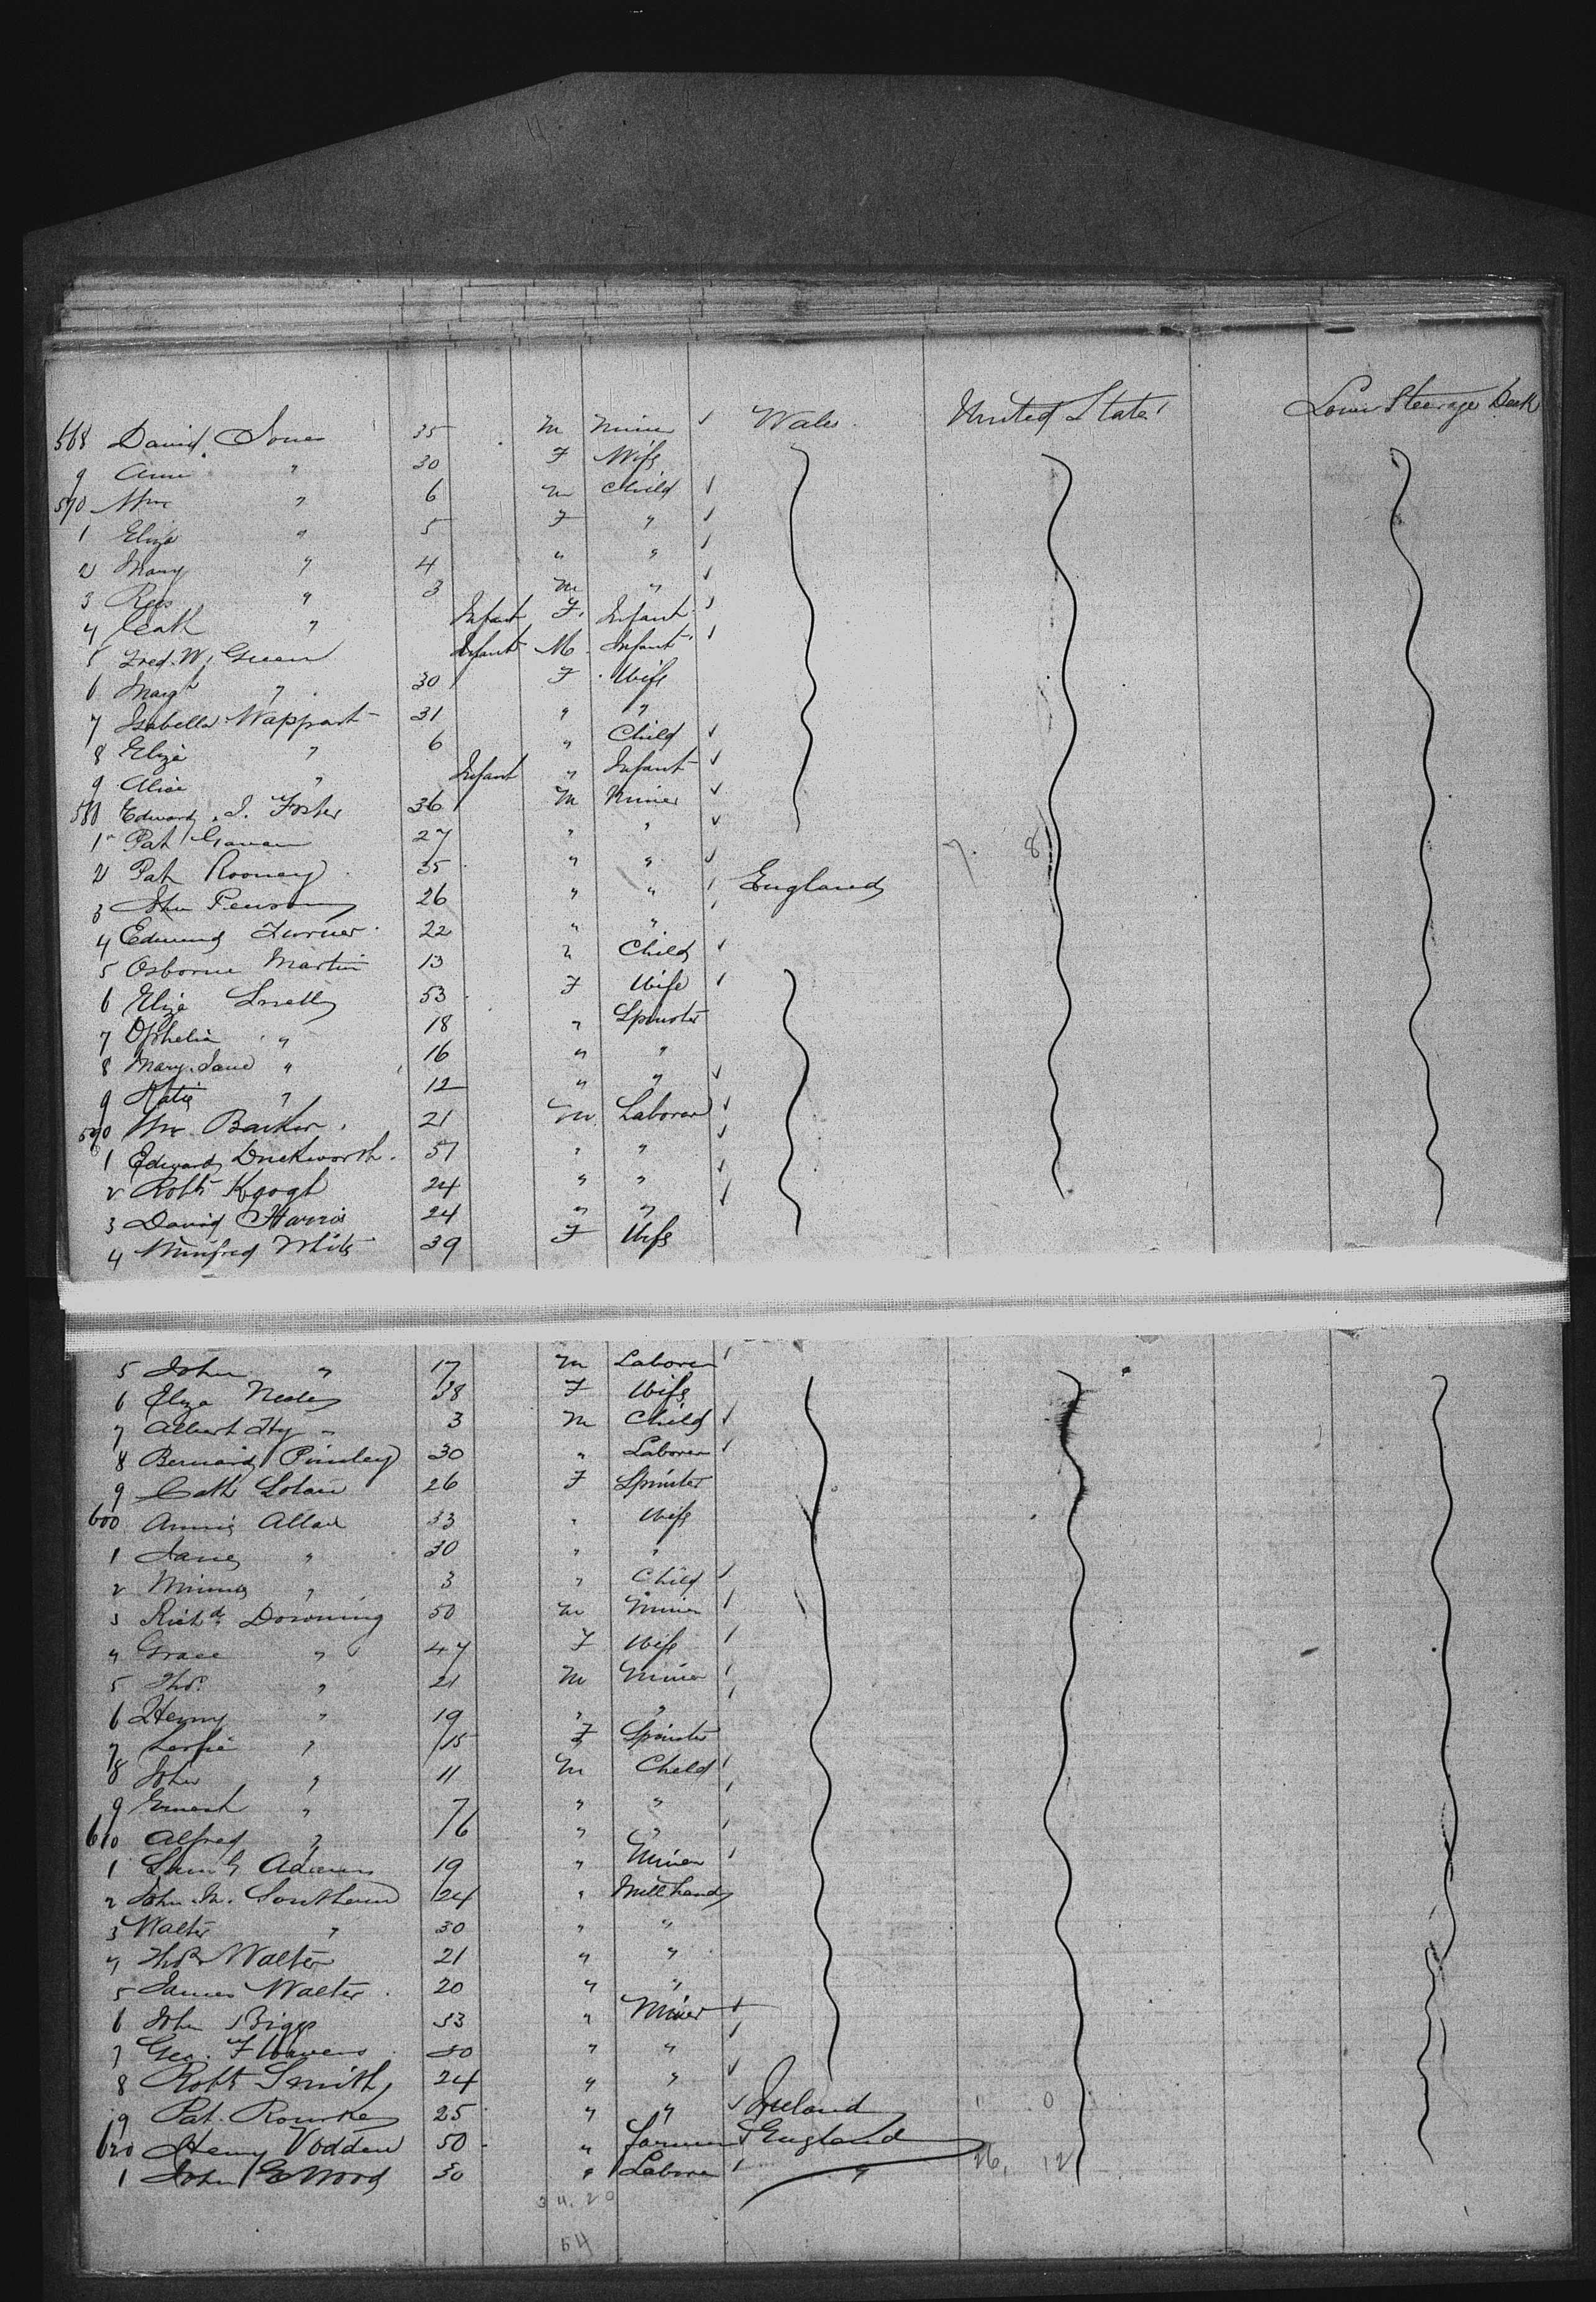 568 David Jones 35 M Miner Wales United States Lower Steerage Deck
9 Ann " 30 F Wife
570 Wm " 6 M Child
1 Eliza " 5 F "
2 Mary " 4 " "
3 Rees " 3 M "
4 Cath " Infant F. Infant
5 Fred. W. Green Infant M Infant
6 Margt " 30 F Wife
7 Isabella Wappart 31 " "
8 Eliza " 6 " Child
9 Alice " Infant " Infant
580 Edward J. Foster 36 M Miner
1 Pat 27 " "
2 Pat Rooney 35 " "
3 John 26 " " England
4 Edmund Turner 22 " "
5 Osborne Martin 13 " Child
6 Eliza Snell 53 F Wife
7 Ophelia " 18 " Spinster
8 Mary Jane " 16 " "
9 Katie " 12 " "
590 Wm Barker 21 M Laborer
1 Edward Duckworth 51 " "
2 Robt Keogh 24 " "
3 David Harris 24 " "
4 Winifred White 39 F Wife
5 John " 17 M Laborer
6 Eliza 38 F Wife
7 Albert Hy " 3 M Child
8 Bernard 30 " Laborer
9 Cath 26 F Spinster
600 Annie Allan 33 " Wife
1 Jane " 30 " "
2 Minnie " 3 " Child
3 Richd Downing 50 M Miner
4 Grace " 47 F Wife
5 Thos. " 21 M Miner
6 Henry " 19 " "
7 " 15 F Spinster
8 John " 11 M Child
9 Ernest " 7 " "
610 Alfred " 6 " "
1 Adams 19 " Miner
2 John M. Southern 24 " Mill hand
3 Walter " 30 " "
4 Thos Walter 21 " "
5 James Walter 20 " "
6 John Biggs 33 " Miner
7 Geo. " "
8 Robt Smith 24 " "
9 Pat. Rourke 25 " " Ireland
620 Henry Vodden 50 " Farmer England
1 John 30 " Laborer "
34. 20
54